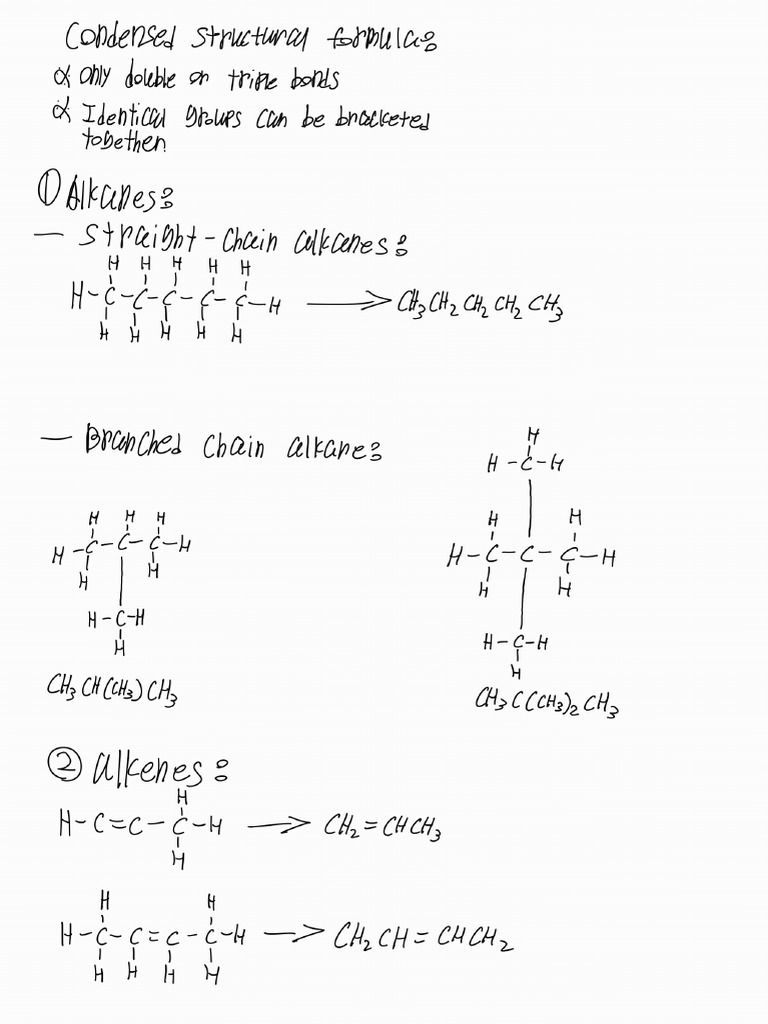 Condensed structural formula:
α only double or triple bonds
α Identical groups can be bracketed
together.
① Alkanes:
— Straight-chain alkanes:
H H H H H
H-C-C-C-C-C-H → CH₃CH₂CH₂CH₂CH₃
H H H H H
— Branched chain alkane:
H
H-C-H
H H H
H-C-C-C-H
H H
H-C-H
H
CH₃CH(CH₃)CH₃
H H
H-C-C-C-H
H H
H-C-H
H
CH₃C(CH₃)₂CH₃
② alkenes:
H
H-C=C-C-H → CH₂=CHCH₃
H
H H
H-C-C=C-C-H → CH₂CH=CHCH₂
H H H H